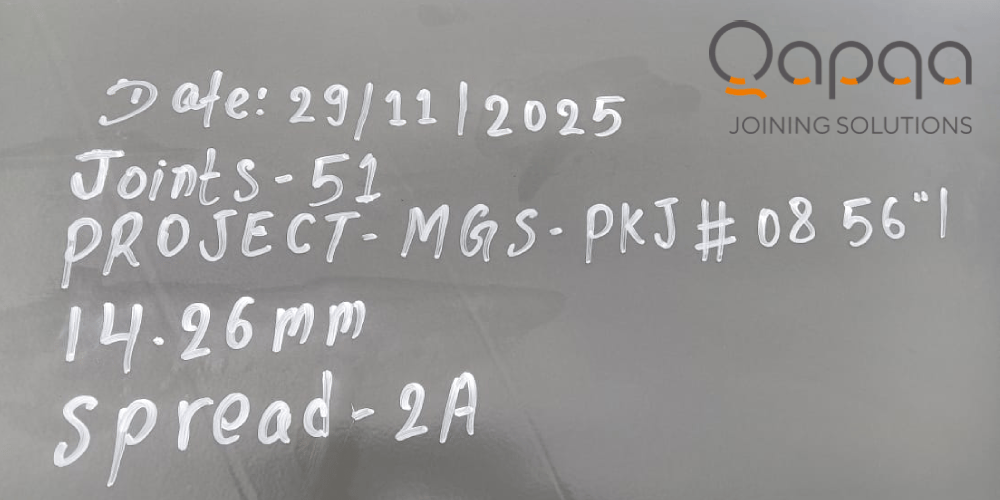 Qapqa
JOINING SOLUTIONS
Date: 29/11/2025
Joints-51
PROJECT- MGS- PKJ # 08 56"|
14.26mm
Spread-2A